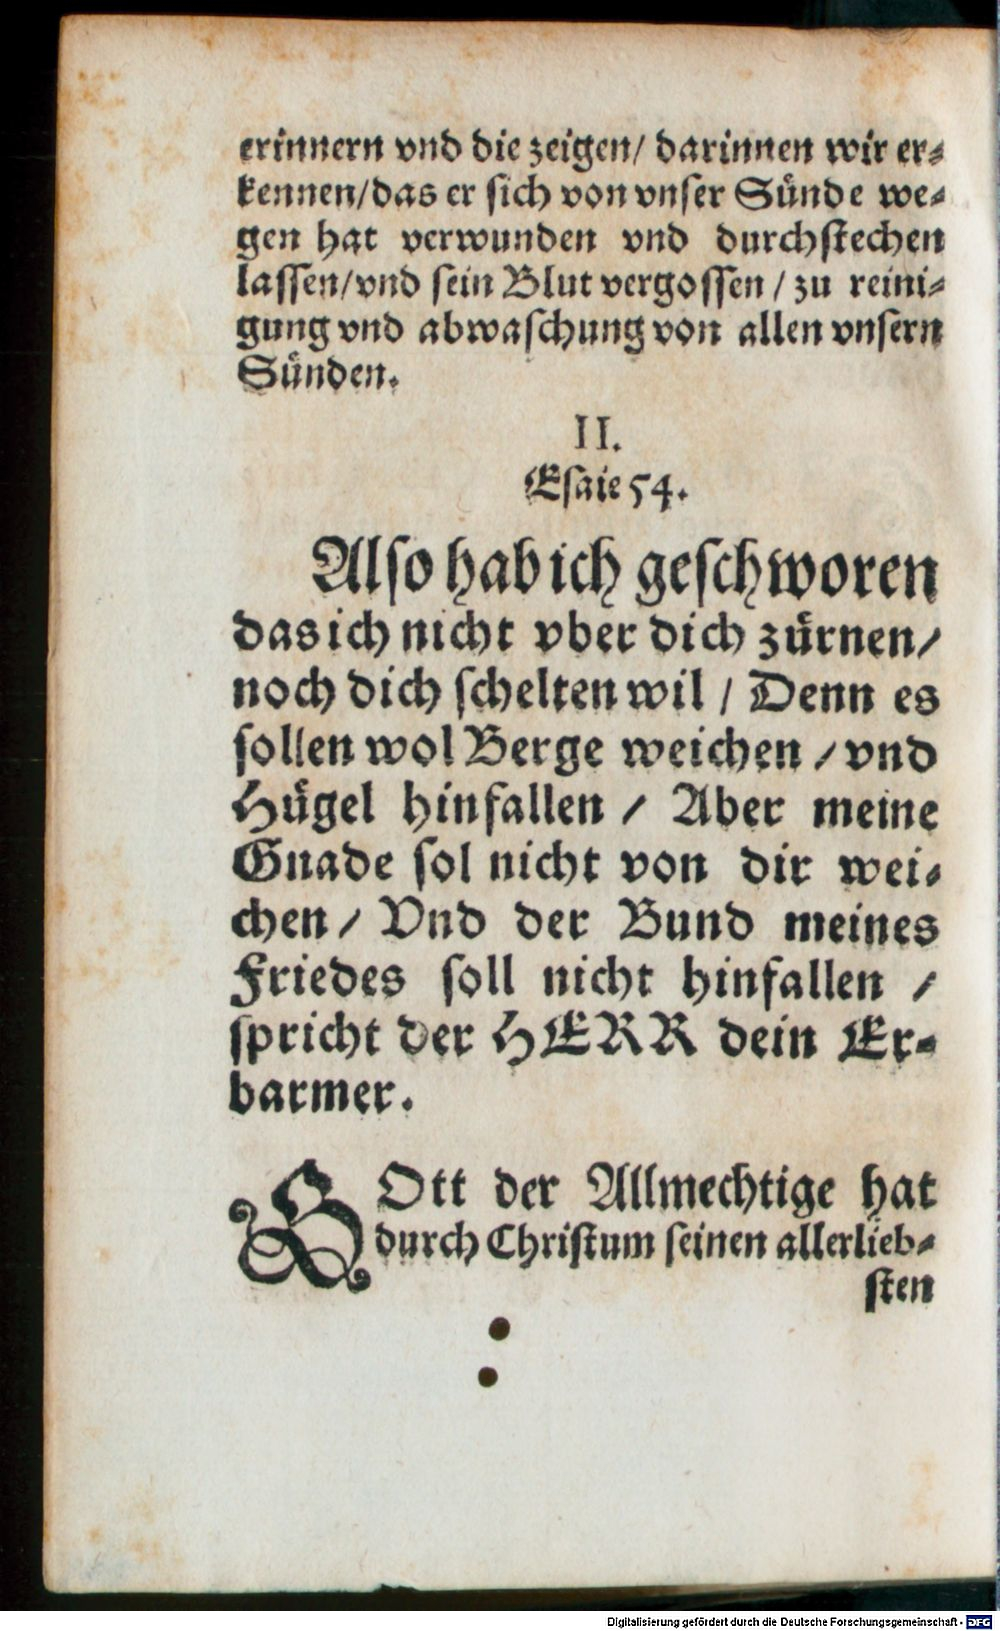 erinnern vnd die zeigen/ darinnen wir er⸗
kennen/das er sich von vnser Sünde we⸗
gen hat verwunden vnd durchstechen
lassen/vnd sein Blut vergossen / zu reini⸗
gung vnd abwaschung von allen vnsern
Sünden.
II.
Esaie 54.
Also hab ich geschworen
das ich nicht vber dich zürnen/
noch dich schelten wil / Denn es
sollen wol Berge weichen / vnd
Hügel hinfallen / Aber meine
Gnade sol nicht von dir wei⸗
chen / Vnd der Bund meines
Friedes soll nicht hinfallen /
spricht der HERR dein Er⸗
barmer.
GOtt der Allmechtige hat
durch Christum seinen allerlieb⸗
sten
Digitalisierung gefördert durch die Deutsche Forschungsgemeinschaft - DFG